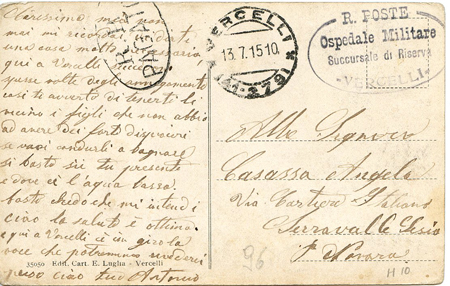 Carissima mia non
mai mi ricordo di dirti
una cosa molto necessaria,
qui a Vercelli
spesse volte degli annegamenti
così ti avverto di tenerti li
vicino i figli che non abbia
ad avere dei forti dispiaceri
se vuoi condurli a bagnare
si basta sii tu presente
e dove ci l'acqua bassa.
basta chedo che m'intendi
ciao la salute è ottima
qui a Vercelli c'è in giro la
voce che potremmo
ciao tuo Antonio
35050 Edit. Cart. E. Luglia - Vercelli
VERCELLI
13.7.15 10
R. POSTE
Ospedale Militare
Succursale di Riserva
VERCELLI
Alla Signora
Casassa Angela
Via Cartiera Italiana
Serravalle Sesia
P. Novara
96
H 10